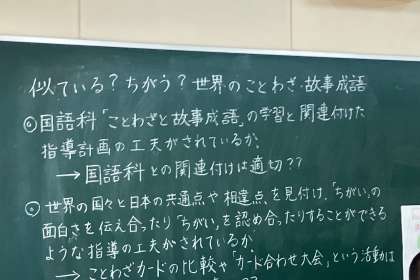 似ている？ちがう？世界のことわざ・故事成語
◎国語科「ことわざと故事成語」の学習と関連付けた
指導計画の工夫がされているか。
→国語科との関連付けは適切??
◎世界の国々と日本の共通点や相違点を見付け、「ちがい」の
面白さを伝え合ったり「ちがい」を認め合ったりすることができる
ような指導の工夫がされているか。
→ことわざカードの比較や「カード合わせ大会」という活動は